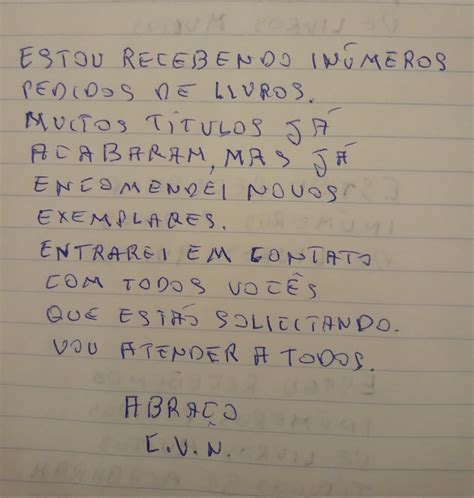 ESTOU RECEBENDO INÚMEROS
PEDIDOS DE LIVROS.
MUITOS TÍTULOS JÁ
ACABARAM, MAS JÁ
ENCOMENDEI NOVOS
EXEMPLARES.
ENTRAREI EM CONTATO
COM TODOS VOCÊS
QUE ESTÃO SOLICITANDO.
VOU ATENDER A TODOS.
ABRAÇO
C.V.N.